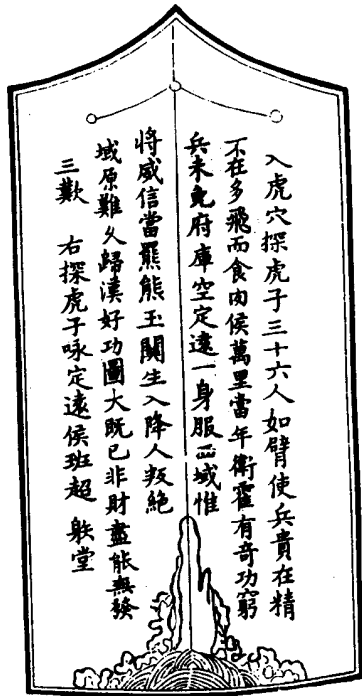 入虎穴探虎子三十六人如臂使兵貴在精
不在多飛而食肉侯萬里當年衛霍有奇功窮
兵未免府庫空定遠一身服西域惟
將威信當羆熊玉關生入降人叛絶
域原難久歸漢好功圖大既已非財盡能無發
三歎 右探虎子咏定遠侯班超 堂